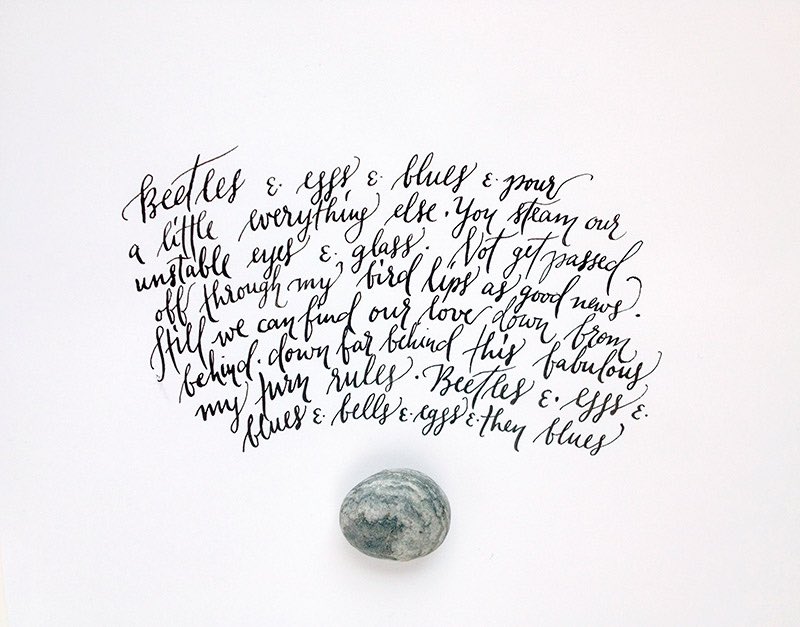 Beetles & eggs & blues & pour
a little everything else. You steam our
unstable eyes & glass. Not get passed
off through my bird lips as good news.
Still we can find our love down from
behind. down far behind this fabulous
my turn rules. Beetles & eggs &
blues & bells & eggs & then blues